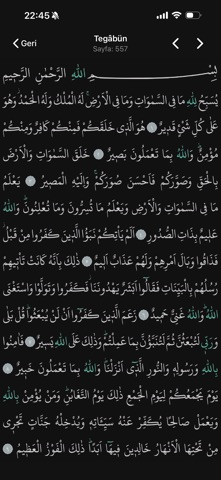 22:45
Tegâbün
Geri
Sayfa: 557
بِسْمِ اللّٰهِ الرَّحْمٰنِ الرَّحٖيمِ
يُسَبِّحُ لِلّٰهِ مَا فِي السَّمٰوَاتِ وَمَا فِي الْاَرْضِۚ لَهُ الْمُلْكُ وَلَهُ الْحَمْدُۘ وَهُوَ
عَلٰى كُلِّ شَيْءٍ قَدٖيرٌ ۝ هُوَ الَّذٖي خَلَقَكُمْ فَمِنْكُمْ كَافِرٌ وَمِنْكُمْ
مُؤْمِنٌۜ وَاللّٰهُ بِمَا تَعْمَلُونَ بَصٖيرٌ ۝ خَلَقَ السَّمٰوَاتِ وَالْاَرْضَ
بِالْحَقِّ وَصَوَّرَكُمْ فَاَحْسَنَ صُوَرَكُمْۚ وَاِلَيْهِ الْمَصٖيرُ ۝ يَعْلَمُ
مَا فِي السَّمٰوَاتِ وَالْاَرْضِ وَيَعْلَمُ مَا تُسِرُّونَ وَمَا تُعْلِنُونَۜ وَاللّٰهُ
عَلٖيمٌ بِذَاتِ الصُّدُورِ ۝ اَلَمْ يَأْتِكُمْ نَبَؤُا الَّذٖينَ كَفَرُوا مِنْ قَبْلُۘ
فَذَاقُوا وَبَالَ اَمْرِهِمْ وَلَهُمْ عَذَابٌ اَلٖيمٌ ۝ ذٰلِكَ بِاَنَّهُ كَانَتْ تَأْتٖيهِمْ
رُسُلُهُمْ بِالْبَيِّنَاتِ فَقَالُٓوا اَبَشَرٌ يَهْدُونَنَاۘ فَكَفَرُوا وَتَوَلَّوْا وَاسْتَغْنَى
اللّٰهُۜ وَاللّٰهُ غَنِيٌّ حَمٖيدٌ ۝ زَعَمَ الَّذٖينَ كَفَرُٓوا اَنْ لَنْ يُبْعَثُواۜ قُلْ بَلٰى
وَرَبّٖي لَتُبْعَثُنَّ ثُمَّ لَتُنَبَّؤُنَّ بِمَا عَمِلْتُمْۜ وَذٰلِكَ عَلَى اللّٰهِ يَسٖيرٌ ۝ فَاٰمِنُوا
بِاللّٰهِ وَرَسُولِهٖ وَالنُّورِ الَّذٖٓي اَنْزَلْنَاۜ وَاللّٰهُ بِمَا تَعْمَلُونَ خَبٖيرٌ ۝
يَوْمَ يَجْمَعُكُمْ لِيَوْمِ الْجَمْعِ ذٰلِكَ يَوْمُ التَّغَابُنِۜ وَمَنْ يُؤْمِنْ بِاللّٰهِ
وَيَعْمَلْ صَالِحًا يُكَفِّرْ عَنْهُ سَيِّـَٔاتِهٖ وَيُدْخِلْهُ جَنَّاتٍ تَجْرٖي
مِنْ تَحْتِهَا الْاَنْهَارُ خَالِدٖينَ فٖيهَٓا اَبَدًاۜ ذٰلِكَ الْفَوْزُ الْعَظٖيمُ ۝